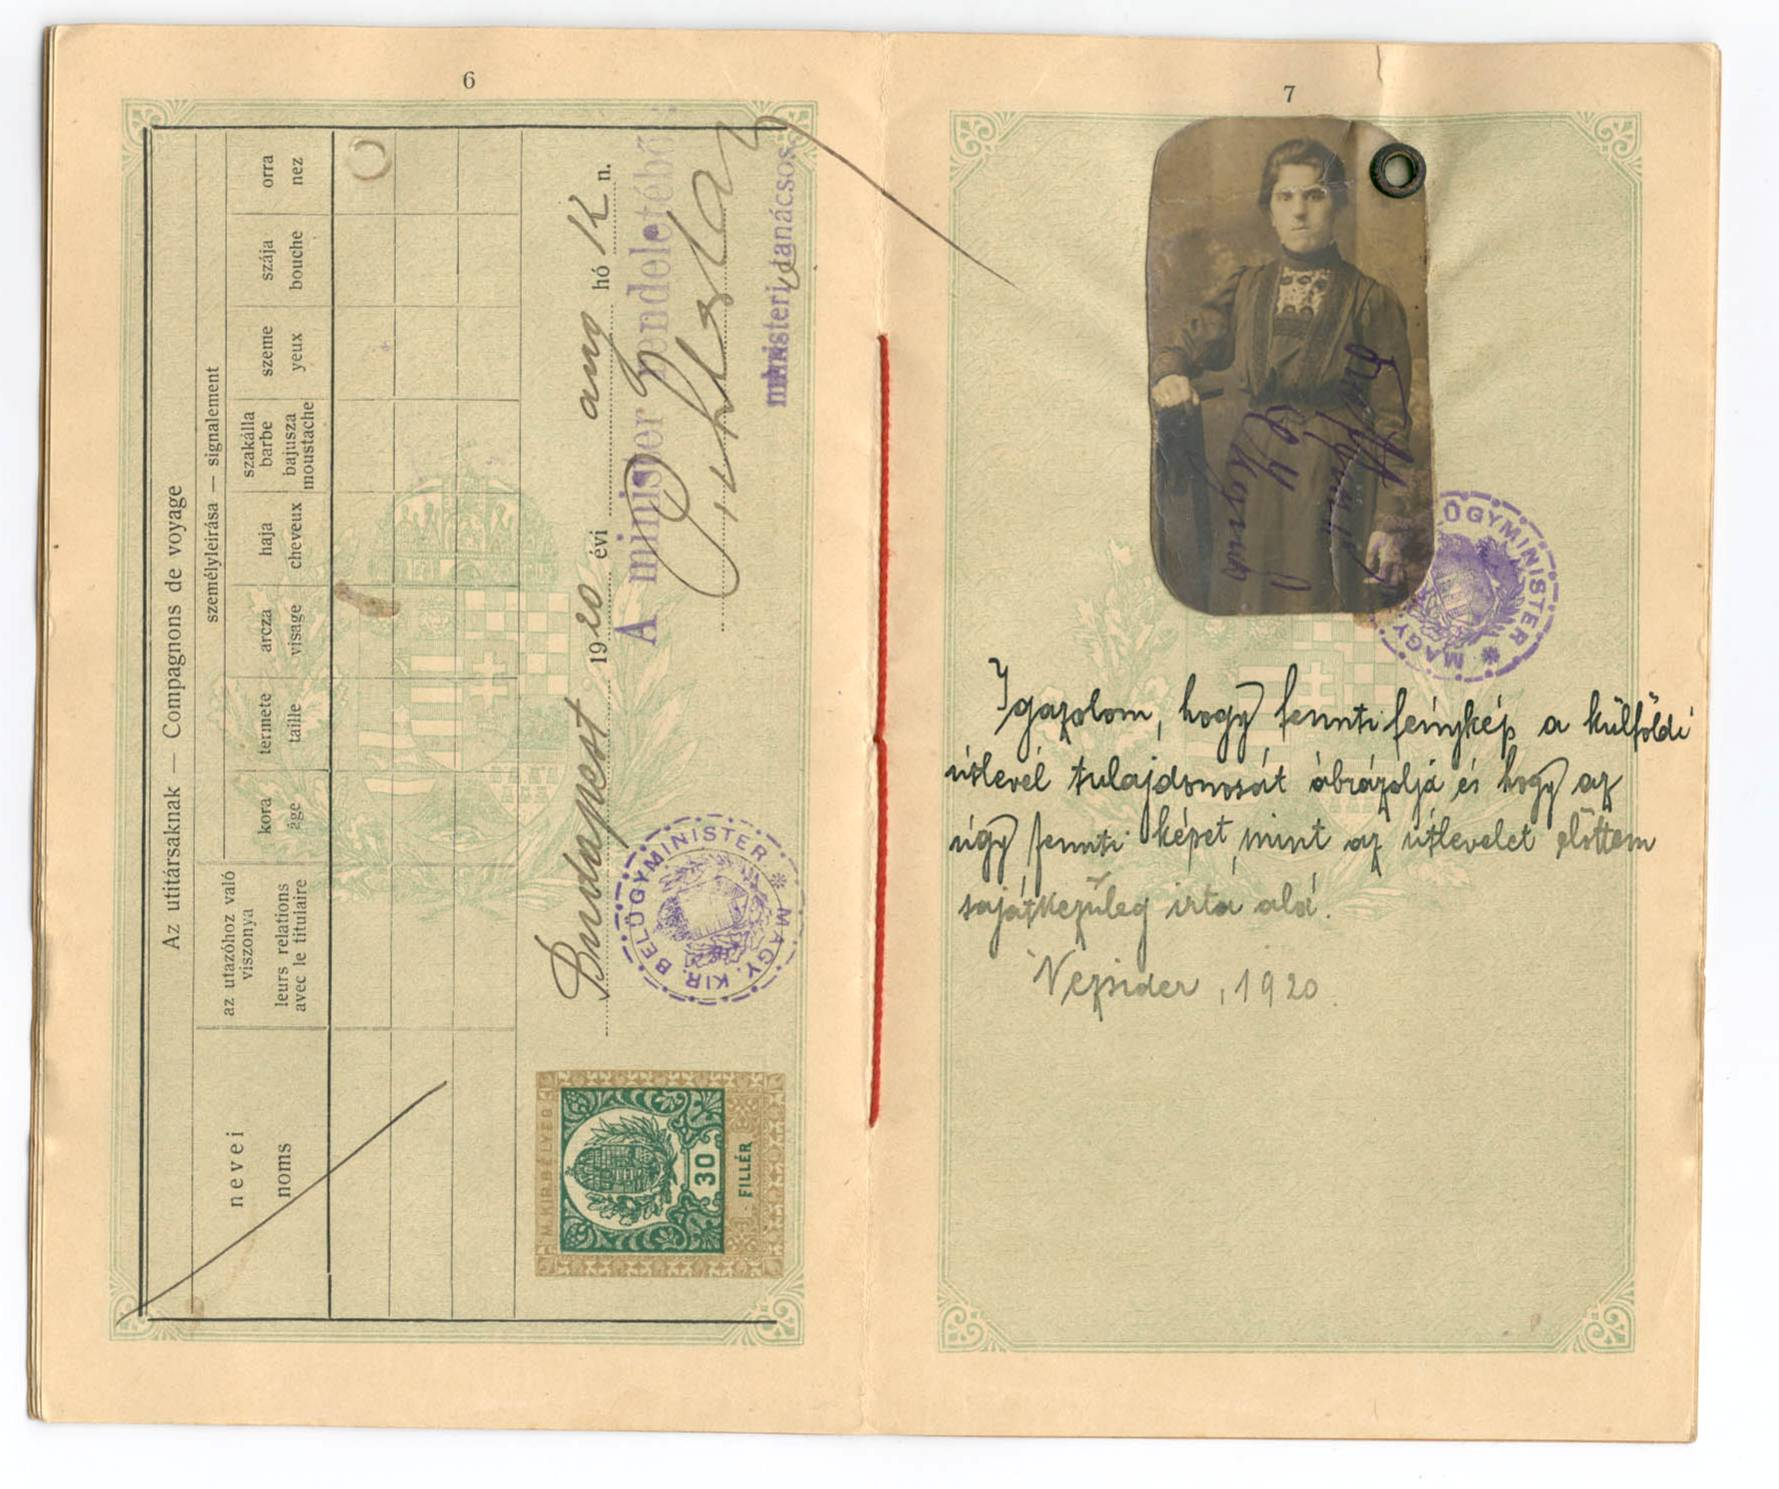 6
Az utitársaknak — Compagnons de voyage
nevei
noms
az utazóhoz való
viszonya
leurs relations
avec le titulaire
személyleirása — signalement
kora
âge
termete
taille
arcza
visage
haja
cheveux
szakálla
barbe
bajusza
moustache
szeme
yeux
szája
bouche
orra
nez
Budapest 1920 évi aug hó n.
A minister rendeletéből:
ministeri tanácsos.
MAGY. KIR. BELÜGYMINISTER
M. KIR. BÉLYEG
30
FILLÉR
7
MAGY. ÜGYMINISTER
Igazolom, hogy fennti fénykép a külföldi
útlevél tulajdonosát ábrázolja és hogy az
úgy fennti képet, mint az útlevelet előttem
sajátkezüleg irta alá.
Nezsider, 1920.